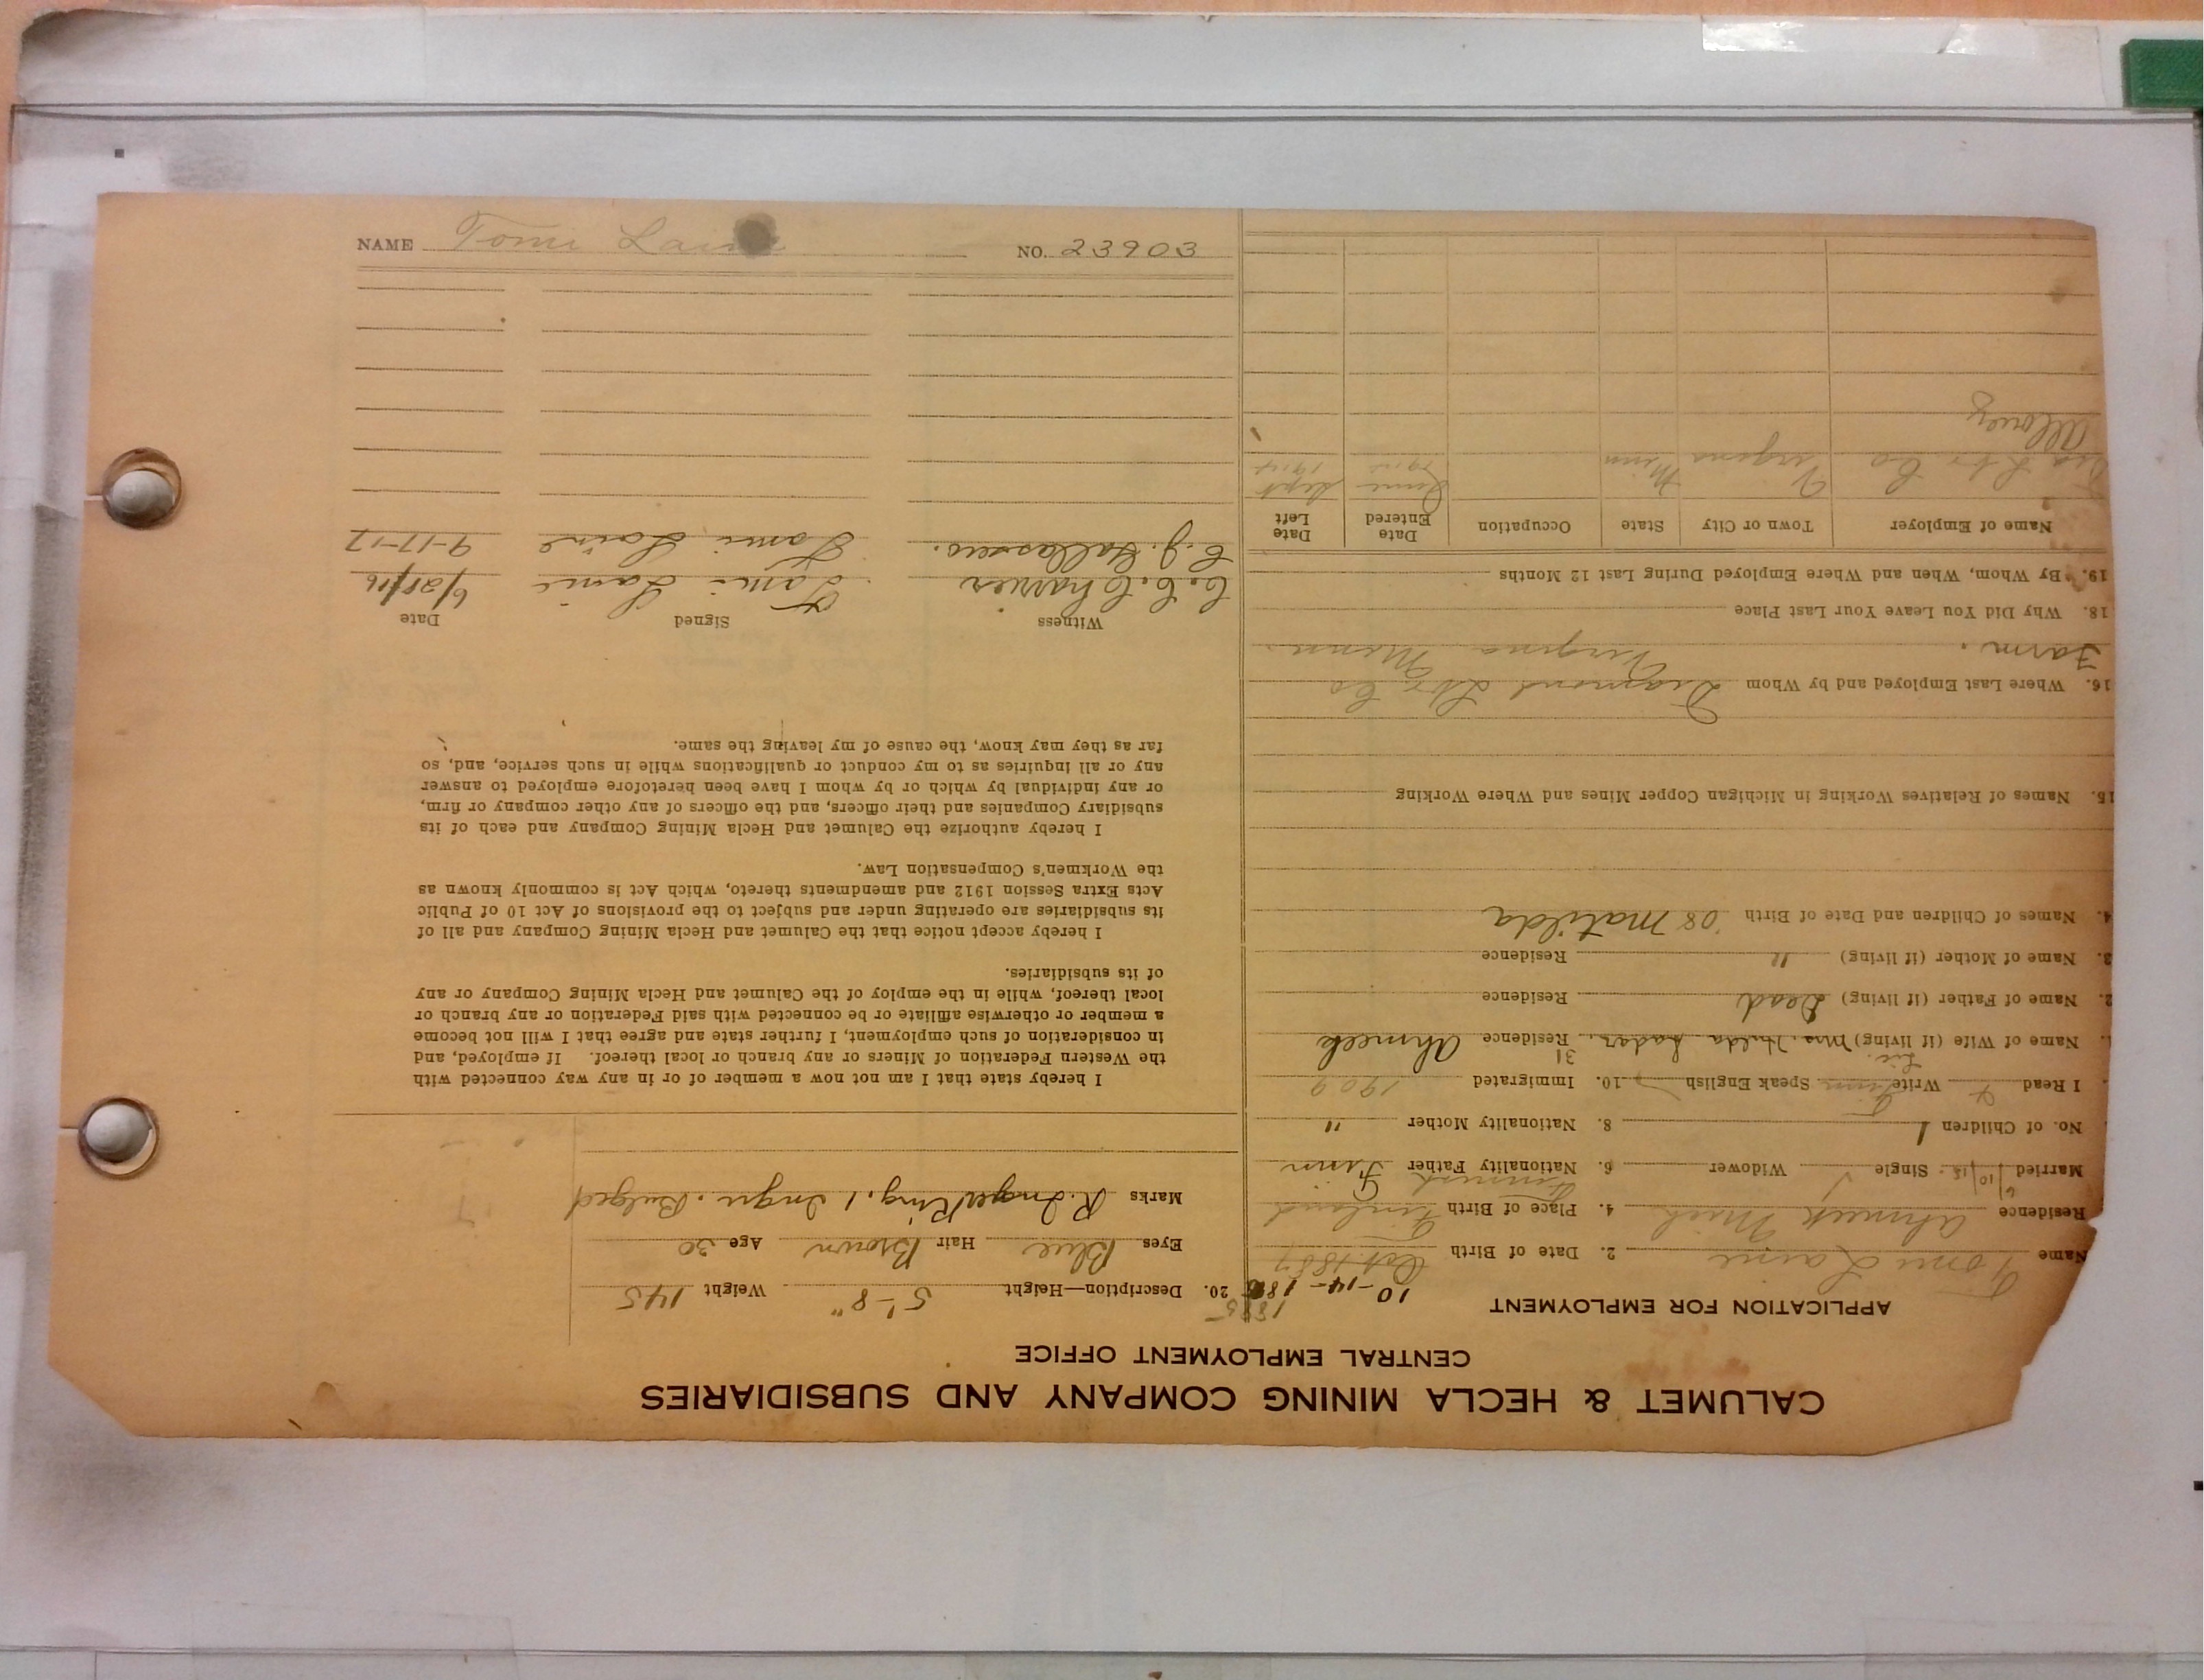 CALUMET & HECLA MINING COMPANY AND SUBSIDIARIES
CENTRAL EMPLOYMENT OFFICE
APPLICATION FOR EMPLOYMENT
10-14-
1885
Name Tomi Laine 2. Date of Birth Oct. 1887
Residence Ahmeek Mich 4. Place of Birth Finland
Finnish
Married 6/10/15. Single Widower 6. Nationality Father Finn
No. of Children 1 8. Nationality Mother "
I Read Write Finn Speak English 10. Immigrated 1909
31
Name of Wife (if living) Mrs. Hilda Residence Ahmeek
2. Name of Father (if living) Dead Residence
3. Name of Mother (if living) " Residence
4. Names of Children and Date of Birth '08 Matilda
15. Names of Relatives Working in Michigan Copper Mines and Where Working
16. Where Last Employed and by Whom Diamond Lbr Co
Farm. Virginia Minn.
18. Why Did You Leave Your Last Place
19. By Whom, When and Where Employed During Last 12 Months
Name of Employer Town or City State Occupation Date Entered Date Left
Dia Lbr Co Virginia Minn June 1915 Sept
Allouez
20. Description—Height 5'-8" Weight 145
Eyes Blue Hair Brown Age 30
Marks R. 1 Bulged
I hereby state that I am not now a member of or in any way connected with
the Western Federation of Miners or any branch or local thereof. If employed, and
in consideration of such employment, I further state and agree that I will not become
a member or otherwise affiliate or be connected with said Federation or any branch or
local thereof, while in the employ of the Calumet and Hecla Mining Company or any
of its subsidiaries.
I hereby accept notice that the Calumet and Hecla Mining Company and all of
its subsidiaries are operating under and subject to the provisions of Act 10 of Public
Acts Extra Session 1912 and amendments thereto, which Act is commonly known as
the Workmen's Compensation Law.
I hereby authorize the Calumet and Hecla Mining Company and each of its
subsidiary Companies and their officers, and the officers of any other company or firm,
or any individual by which or by whom I have been heretofore employed to answer
any or all inquiries as to my conduct or qualifications while in such service, and, so
far as they may know, the cause of my leaving the same.
Witness Signed Date
C. C. Charrier Tomi Laine 6/28/16
C. J. Tomi Laine 9-17-17
NAME Tomi Laine NO. 23903